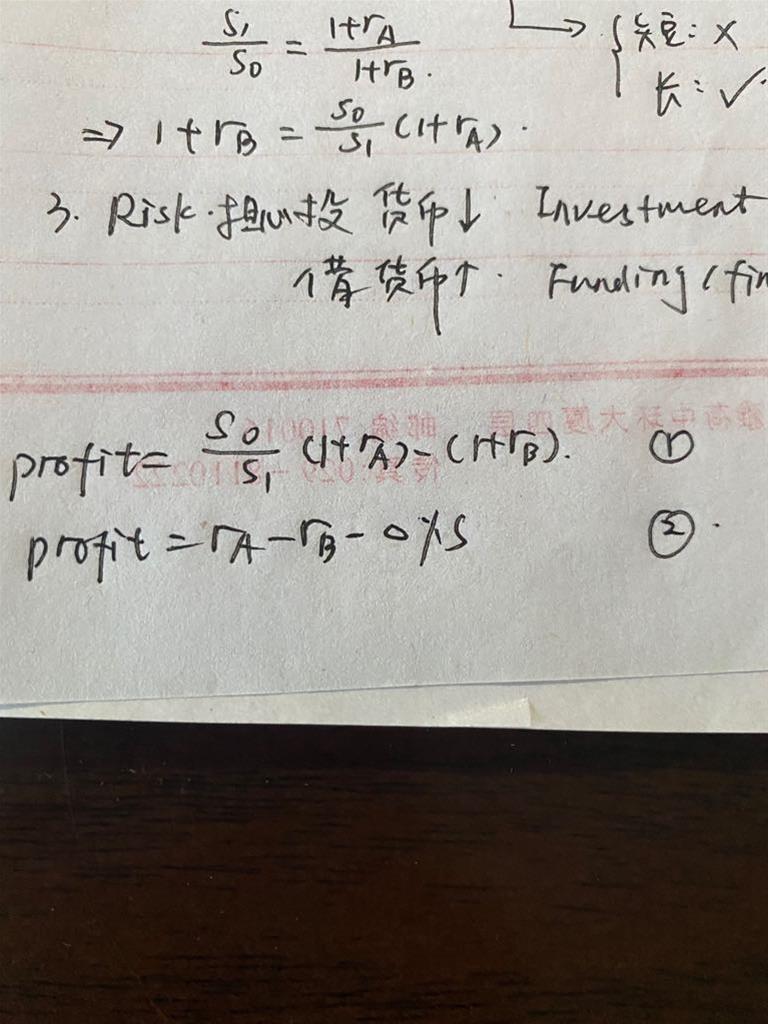 S₁/S₀ = (1+rA)/(1+rB).
→ { 短: ×
长: ✓.
⇒ 1+rB = S₀/S₁ (1+rA).
3. Risk. 担心投 货币↓ Investment
借 货币↑. Funding (fin
profit = S₀/S₁ (1+rA) - (1+rB). ①
profit = rA - rB - △%S ②.